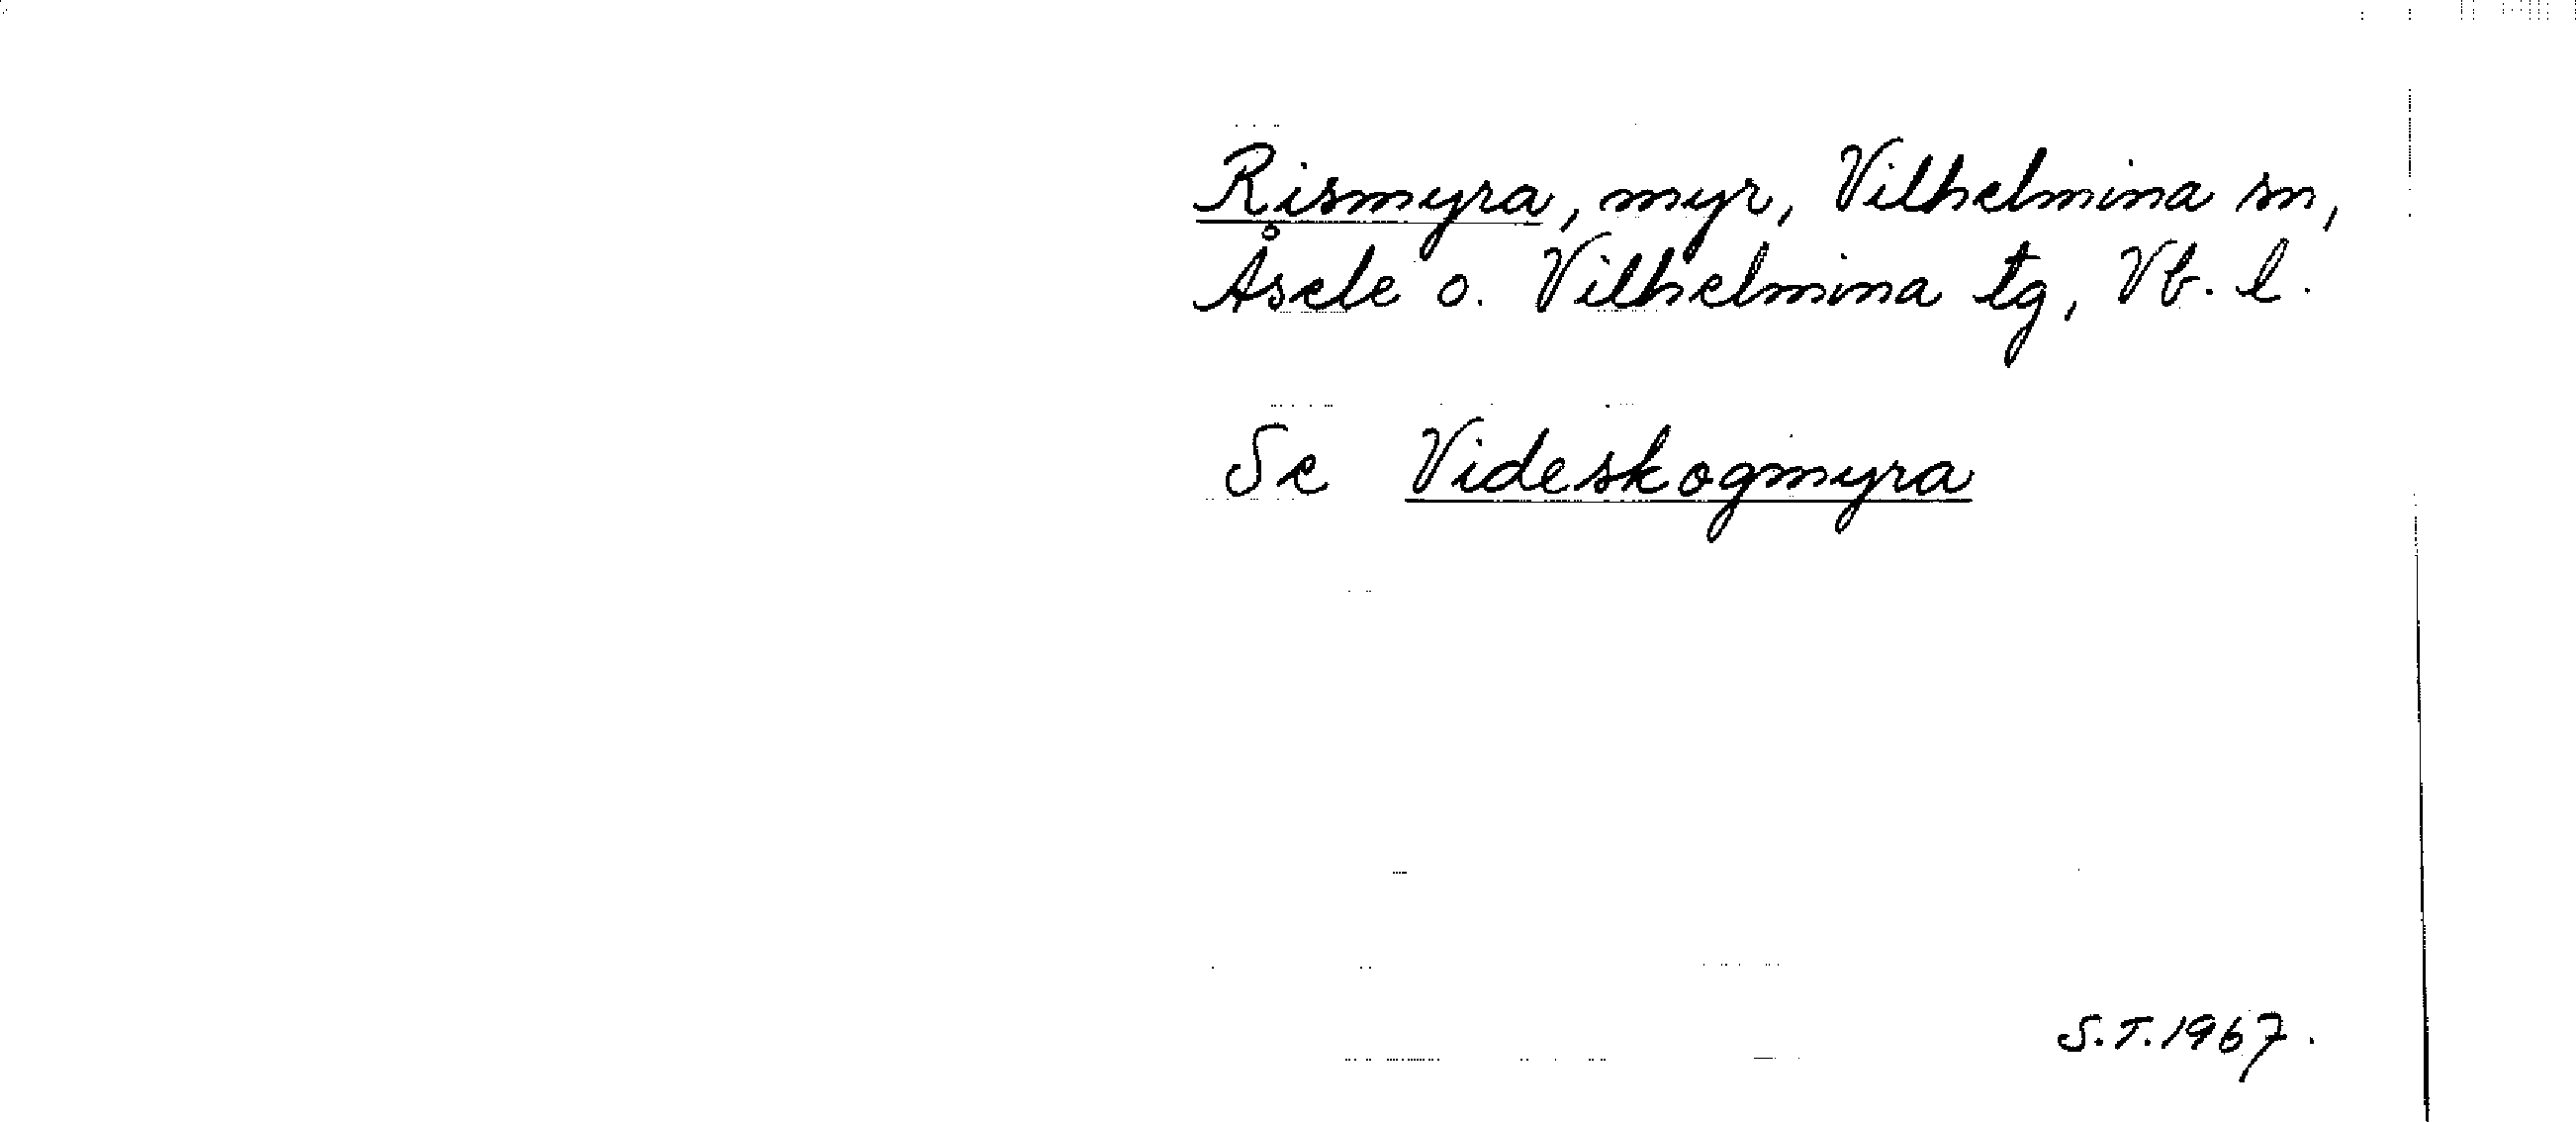 Rismyra, myr, Vilhelmina sn,
Åsele o. Vilhelmina tg, Vb. l.
Se Videskogmyra
S.T. 1967.